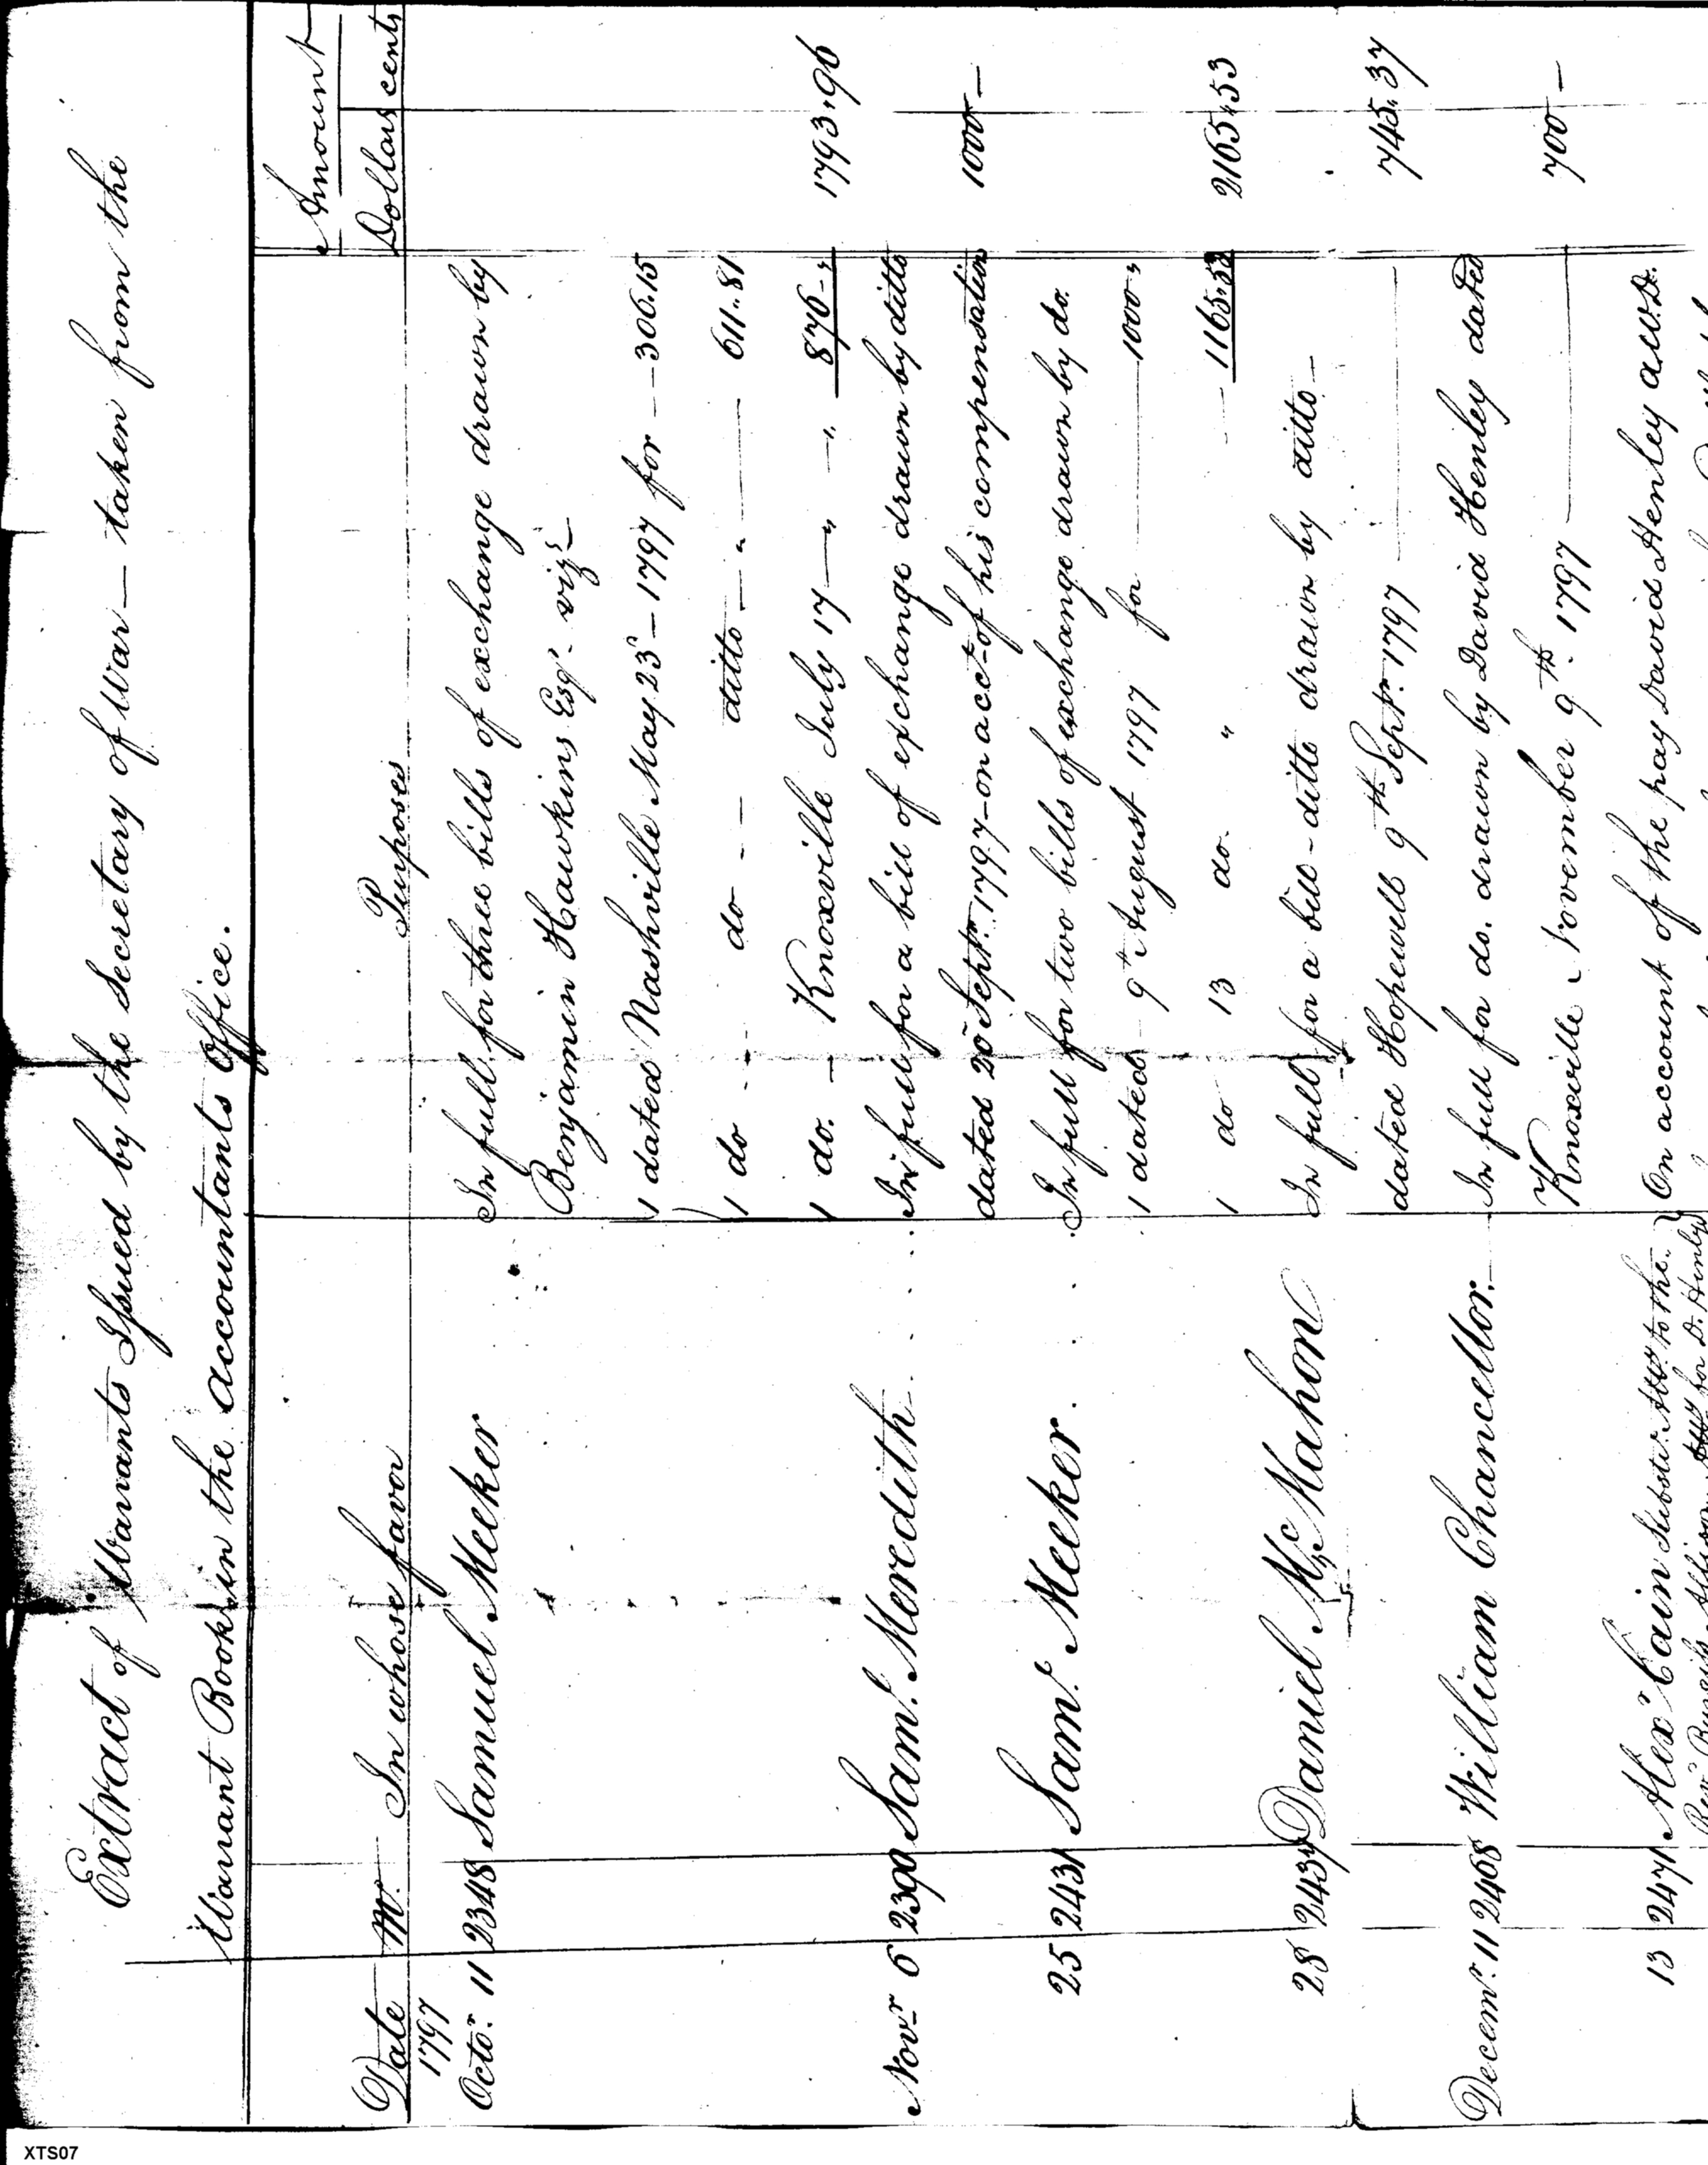 Extract of Warrants Issued by the Secretary of War — taken from the
Warrant Book in the Accountants Office.
Date No. In whose favor Purposes Amount
Dollars cents
1797
Octor. 11 2348 Samuel Meeker In full for three bills of exchange drawn by
Benjamin Hawkins Esqr. vizt
1 dated Nashville May 23d — 1797 for — 306.15
1 do do ditto — " — 611.81
1 do. — Knoxville July 17 — " — " 876 - " 1793.96
Novr 6 2390 Saml. Meredith In full for a bill of exchange drawn by ditto
dated 20 Septr. 1797 — on acct of his compensation 1000 —
25 2431 Saml. Meeker In full for two bills of exchange drawn by do.
1 dated 9th August 1797 for 1000 "
1 do 13 do. " 1165.53 2165.53
28 2437 Daniel McMahon In full for a bill - ditto drawn by ditto —
dated Hopewell 9th Septr. 1797 745.37
Decemr. 11 2468 William Chancellor. In full for do. drawn by David Henley dated
Knoxville November 9th. 1797 700 —
13 2471 Alexr Cain to the On account of the pay David Henley a.W.D.
for D. Henley
XTS07